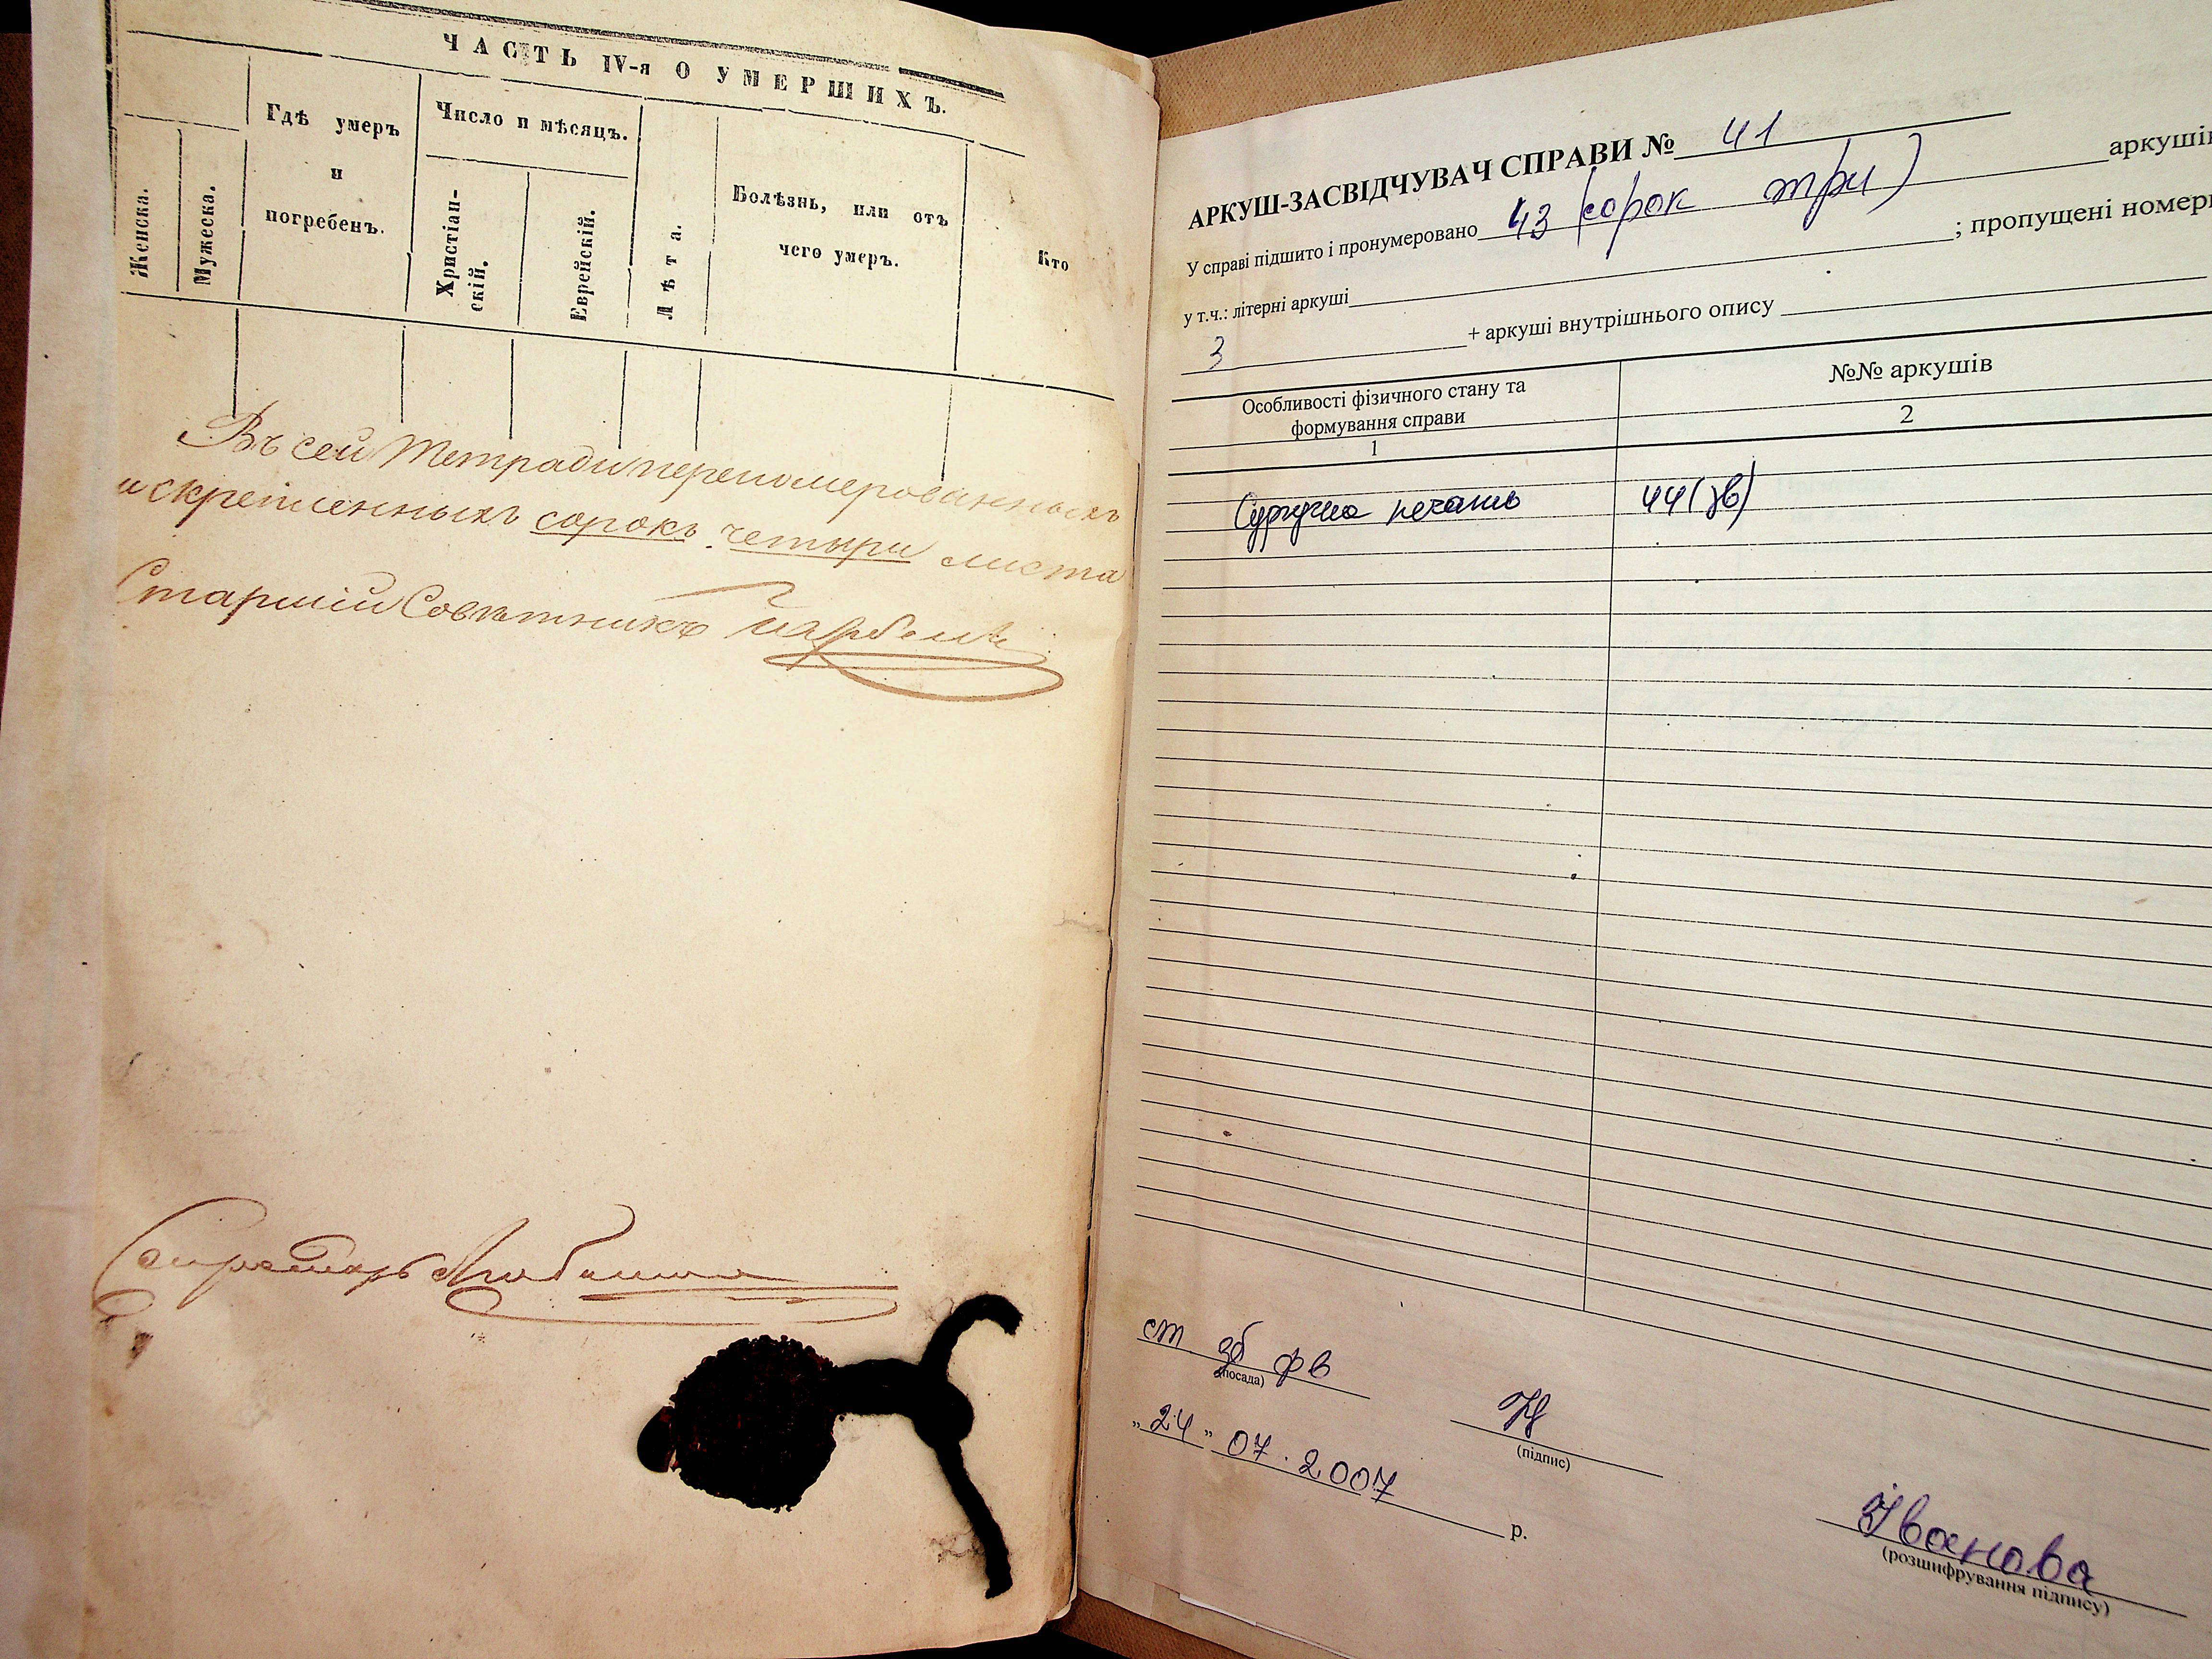 ЧАСТЬ IV-я О УМЕРШИХЪ.
Женска.
Мужеска.
Гдѣ умеръ
и
погребенъ.
Число и мѣсяцъ.
Христіан-
скій.
Еврейскій.
Лѣта.
Болѣзнь, или отъ
чего умеръ.
Кто
Въ сей тетради перенумерованныхъ
и скрепленныхъ сорокъ четыри листа
Старшій Совѣтникъ
Секретарь
АРКУШ-ЗАСВІДЧУВАЧ СПРАВИ № 41
У справі підшито і пронумеровано 43 (сорок три) аркушів
у т.ч.: літерні аркуші ; пропущені номери
3 + аркуші внутрішнього опису
Особливості фізичного стану та
формування справи
№№ аркушів
1
2
Сургучна печать 44(зв)
ст зб фв
(посада)
(підпис)
„24” 07.2007 р.
Іванова
(розшифрування підпису)